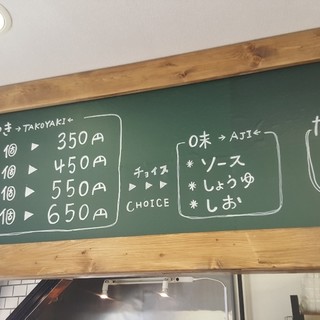 き → TAKOYAKI ←
個 ▶ 350円
個 ▶ 450円
個 ▶ 550円
個 ▶ 650円
チョイス
▶ ▶ ▶
CHOICE
味 → AJI ←
* ソース
* しょうゆ
* しお